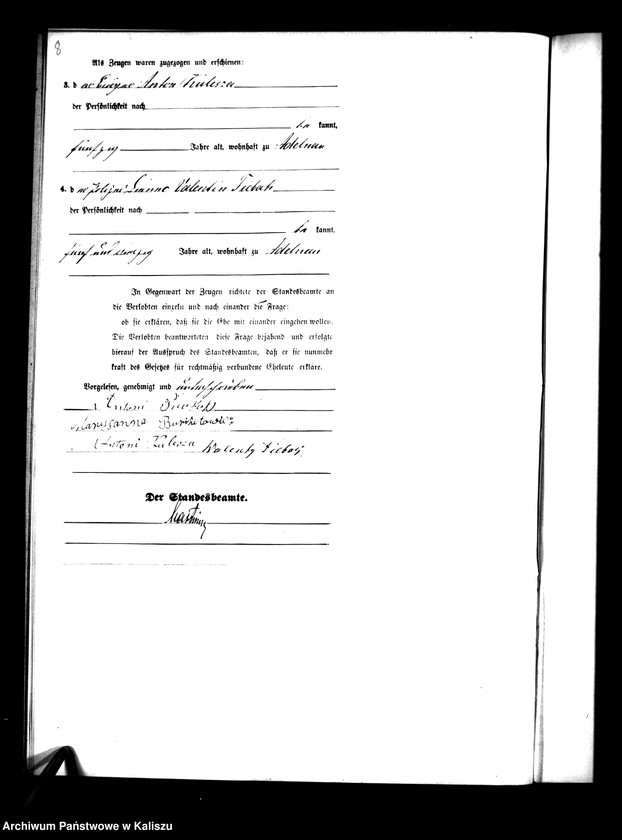 8
Als Zeugen waren zugezogen und erschienen:
3. der Anton Kulesza
der Persönlichkeit nach
be kannt,
fünfzig Jahre alt, wohnhaft zu Adelnau
4. der Valentin
der Persönlichkeit nach
be kannt.
fünf und Jahre alt, wohnhaft zu Adelnau
In Gegenwart der Zeugen richtete der Standesbeamte an
die Verlobten einzeln und nach einander die Frage:
ob sie erklären, daß sie die Ehe mit einander eingehen wollen.
Die Verlobten beantworteten diese Frage bejahend und erfolgte
hierauf der Ausspruch des Standesbeamten, daß er sie nunmehr
kraft des Gesetzes für rechtmäßig verbundene Eheleute erkläre.
Vorgelesen, genehmigt und unterschrieben
Antoni
Maryjanna
Antoni Kulesza Walenty
Der Standesbeamte.
Archiwum Państwowe w Kaliszu